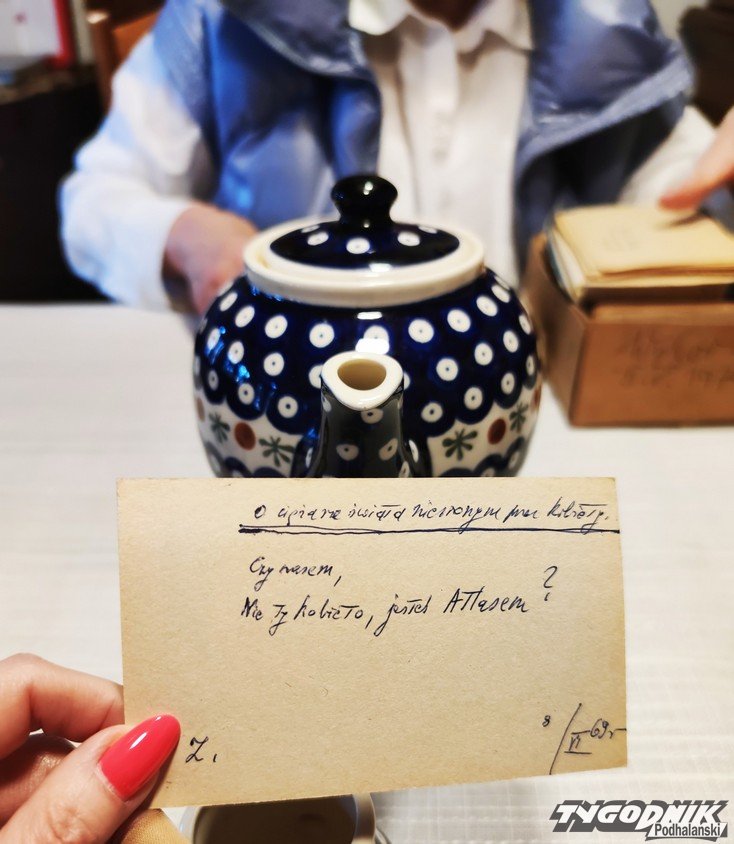 O ciężarze świata niesionym przez kobiety.
Czy czasem,
Nie Ty kobieto, jesteś Atlasem ?
Z.
8/VI 69r
TYGODNIK
Podhalański